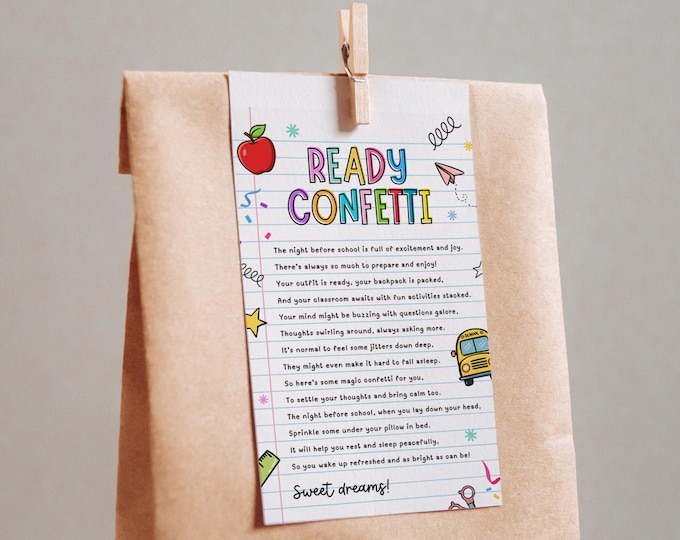 READY
CONFETTI
The night before school is full of excitement and joy.
There's always so much to prepare and enjoy!
Your outfit is ready, your backpack is packed,
And your classroom awaits with fun activities stacked.
Your mind might be buzzing with questions galore,
Thoughts swirling around, always asking more.
It's normal to feel some jitters down deep,
They might even make it hard to fall asleep.
So here's some magic confetti for you,
To settle your thoughts and bring calm too.
The night before school, when you lay down your head,
Sprinkle some under your pillow in bed.
It will help you rest and sleep peacefully,
So you wake up refreshed and as bright as can be!
Sweet dreams!
SCHOOL